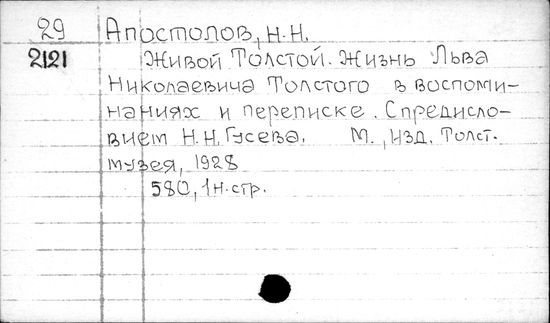 29 Апостолов, Н.Н.
2121 Живой Толстой. Жизнь Льва
Николаевича Толстого в воспоми-
наниях и переписке. Спредисло-
вием Н.Н.Гусева. М., изд. Толст.
музея, 1928
580, 1н.стр.